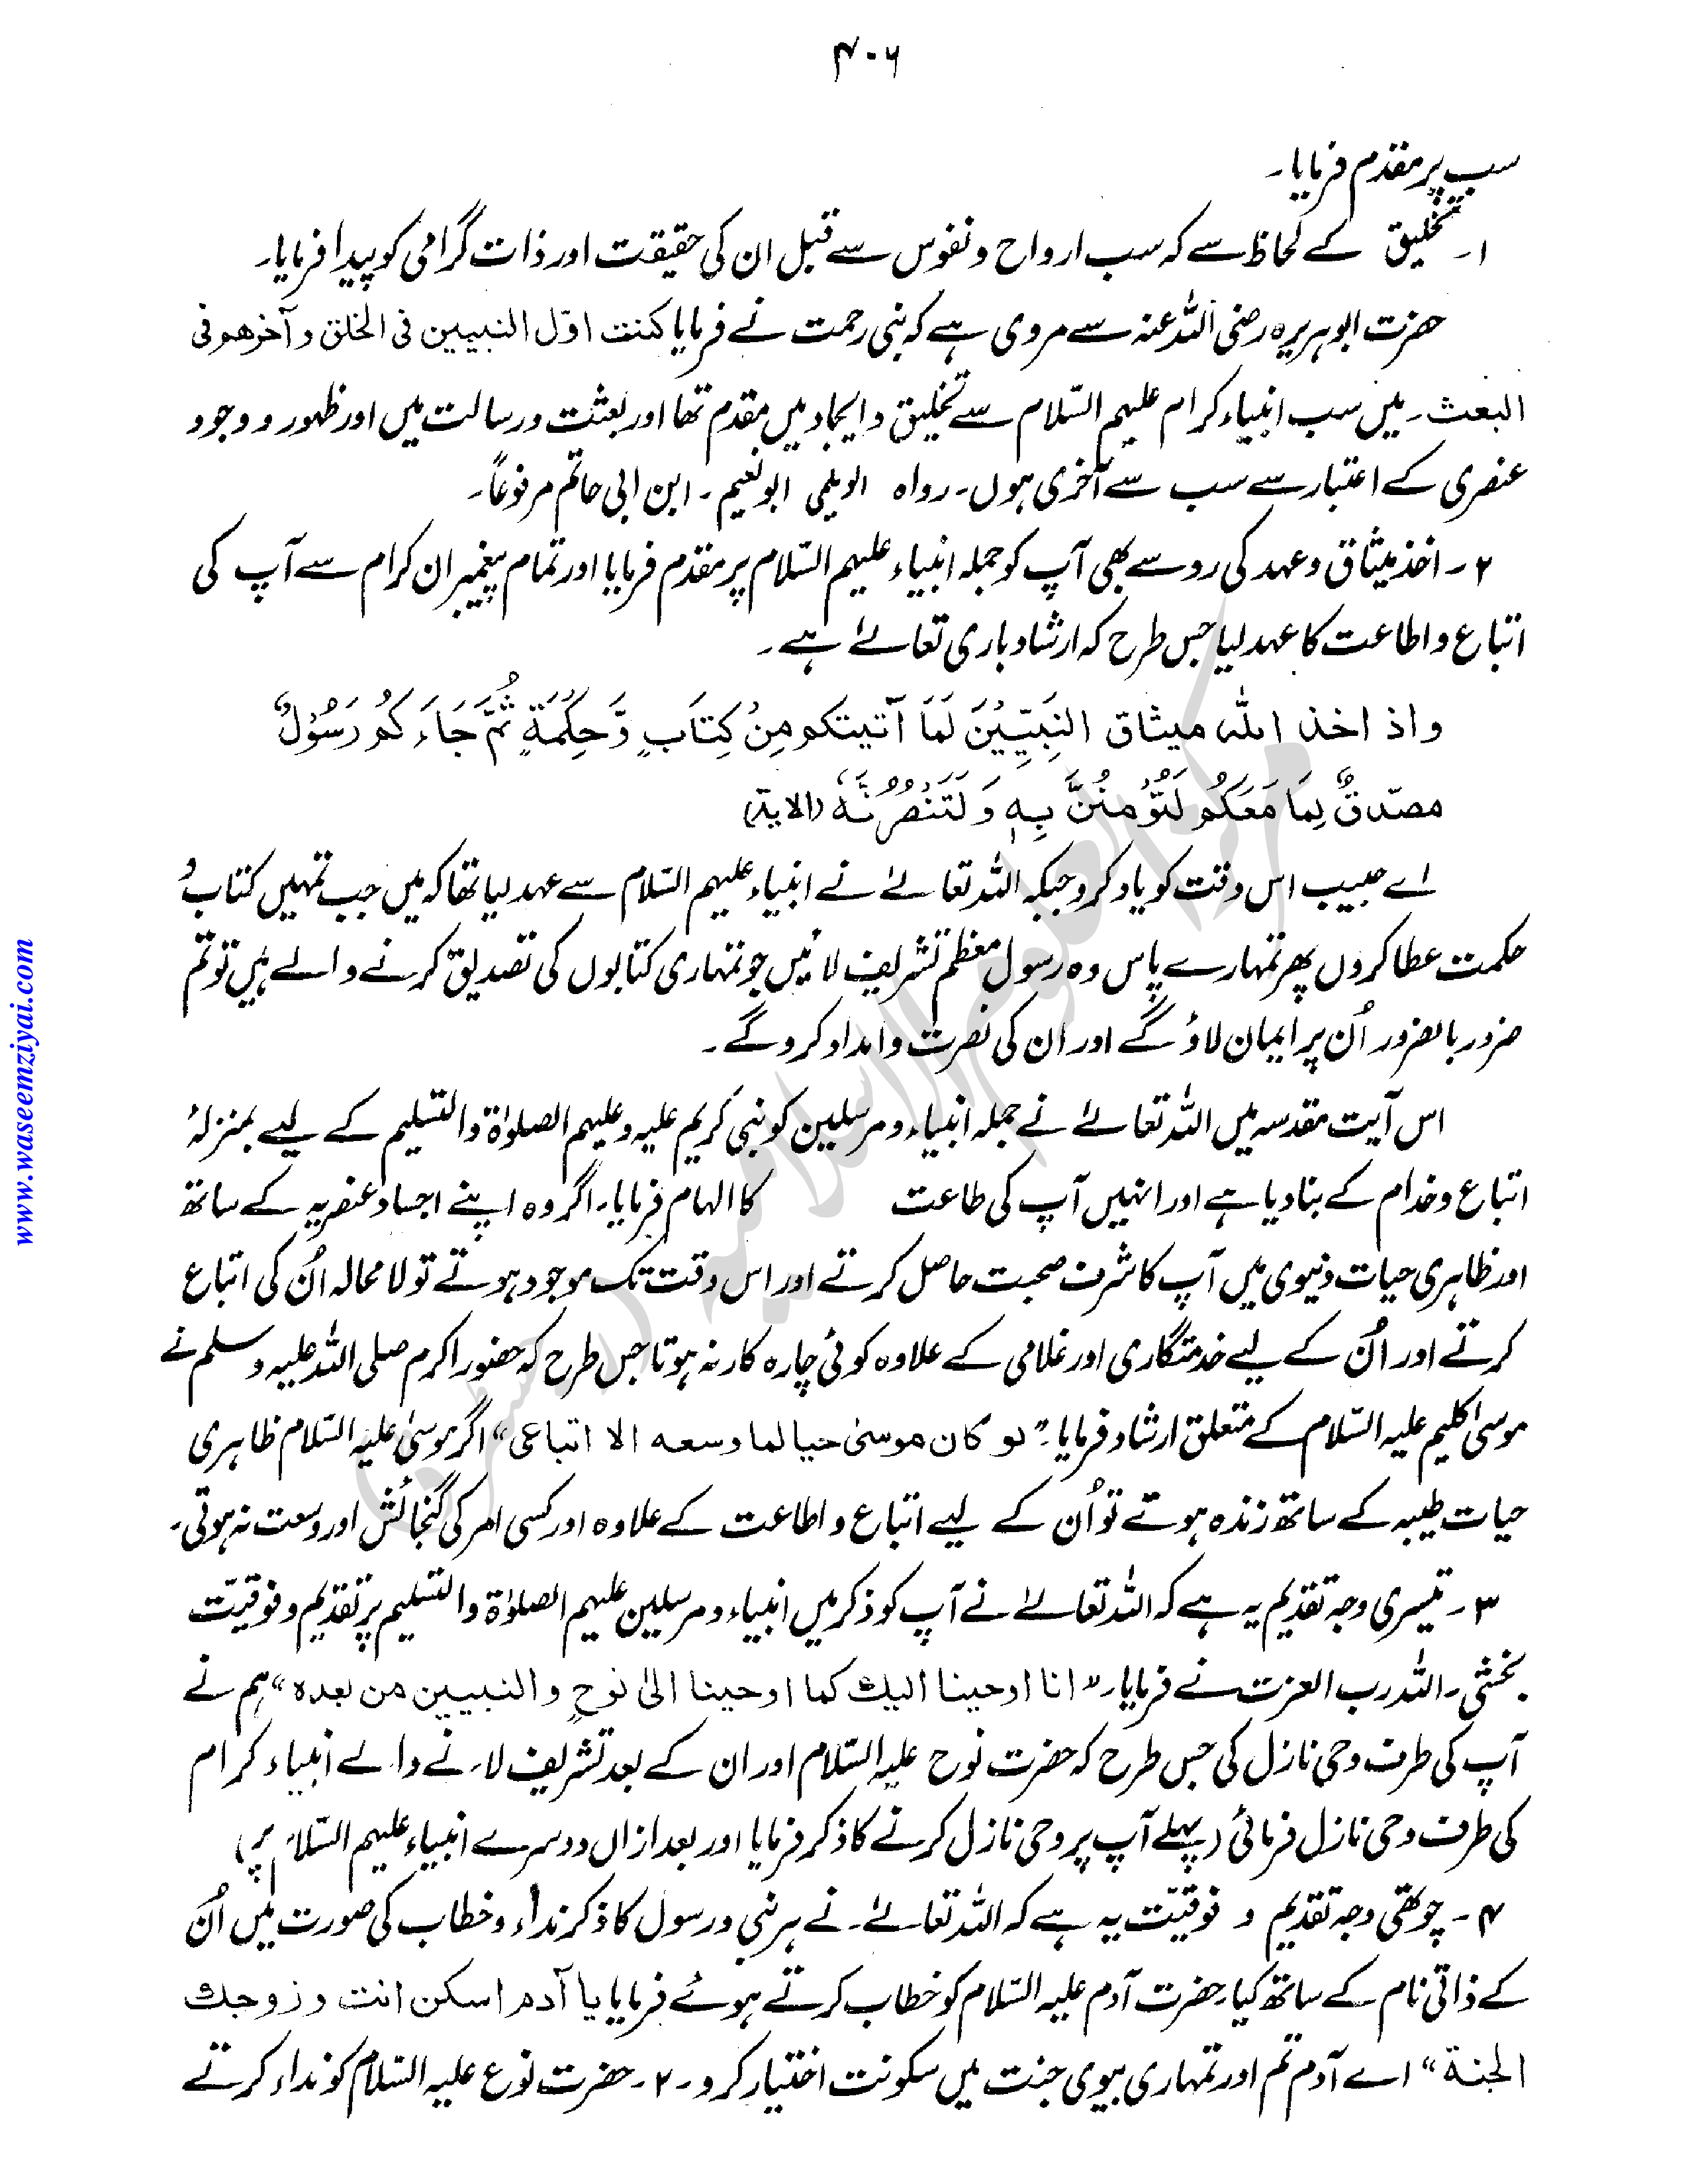 ۴۰۶
سب پر مقدم فرمایا۔
۱۔ تخلیق کے لحاظ سے کہ سب ارواح و نفوس سے قبل ان کی حقیقت اور ذات گرامی کو پیدا فرمایا۔
حضرت ابوہریرہ رضی اللہ عنہ سے مروی ہے کہ نبی رحمت نے فرمایا کنت اوّل النبیین فی الخلق و آخرھو فی
البعث۔ میں سب انبیاء کرام علیہم السّلام سے تخلیق و ایجاد میں مقدم تھا اور بعثت و رسالت میں اور ظہور و وجود
عنصری کے اعتبار سے سب سے آخری ہوں۔ رواہ ابونعیم۔ ابن ابی حاتم مرفوعاً۔
۲۔ اخذ میثاق و عہد کی رو سے بھی آپ کو جملہ انبیاء علیہم السّلام پر مقدم فرمایا اور تمام پیغمبران کرام سے آپ کی
اتباع و اطاعت کا عہد لیا جس طرح کہ ارشاد باری تعالےٰ ہے۔
واذ اخذ اللہ میثاق النَبِیّٖیْنَ لَمَا آتیتکو مِنْ کِتَابٍ وَّحِکْمَۃٍ ثُمَّ جَاءَکُمْ رَسُوْلٌ
مصدّقٌ لِمَا مَعَکُو لَتُؤْمِنُنَّ بِہٖ وَلَتَنْصُرُنَّہٗ (الایۃ)
اے حبیب اس وقت کو یاد کرو جبکہ اللہ تعالےٰ نے انبیاء علیہم السّلام سے عہد لیا تھا کہ میں جب تمہیں کتاب و
حکمت عطا کروں پھر تمہارے پاس وہ رسول معظم تشریف لائیں جو تمہاری کتابوں کی تصدیق کرنے والے ہیں تو تم
ضرور بالضرور اُن پر ایمان لاؤ گے اور ان کی نصرت و امداد کرو گے۔
اس آیت مقدسہ میں اللہ تعالےٰ نے جملہ انبیاء و مرسلین کو نبی کریم علیہ و علیہم الصلوٰۃ والتسلیم کے لیے بمنزلہٗ
اتباع و خدام کے بنا دیا ہے اور انہیں آپ کی طاعت کا الہام فرمایا۔ اگر وہ اپنے اجساد عنصریہ کے ساتھ
اور ظاہری حیات دنیوی میں آپ کا شرف صحبت حاصل کرتے اور اس وقت تک موجود ہوتے تو لا محالہ اُن کی اتباع
کرتے اور اُن کے لیے خدمتگاری اور غلامی کے علاوہ کوئی چارہ کار نہ ہوتا جس طرح کہ حضور اکرم صلی اللہ علیہ وسلم نے
موسیٰ کلیم علیہ السّلام کے متعلق ارشاد فرمایا۔ ”لو کان موسیٰ حیا لما وسعہ الا اتباعی“ اگر موسیٰ علیہ السّلام ظاہری
حیات طیبہ کے ساتھ زندہ ہوتے تو اُن کے لیے اتباع و اطاعت کے علاوہ اور کسی امر کی گنجائش اور وسعت نہ ہوتی۔
۳۔ تیسری وجہ تقدیم یہ ہے کہ اللہ تعالےٰ نے آپ کو ذکر میں انبیاء و مرسلین علیہم الصلوٰۃ والتسلیم پر تقدیم و فوقیت
بخشی۔ اللہ رب العزت نے فرمایا۔ ”انا اوحینا الیک کما اوحینا الیٰ نوحٍ والنبیین من بعدہ“ ہم نے
آپ کی طرف وحی نازل کی جس طرح کہ حضرت نوح علیہ السّلام اور ان کے بعد تشریف لانے والے انبیاء کرام
کی طرف وحی نازل فرمائی (پہلے آپ پر وحی نازل کرنے کا ذکر فرمایا اور بعد ازاں دوسرے انبیاء علیہم السّلام پر)
۴۔ چوتھی وجہ تقدیم و فوقیّت یہ ہے کہ اللہ تعالےٰ نے ہر نبی و رسول کا ذکر نداء و خطاب کی صورت میں اُن
کے ذاتی نام کے ساتھ کیا۔ حضرت آدم علیہ السّلام کو خطاب کرتے ہوئے فرمایا یا آدم اسکن انت و زوجک
الجنۃ“ اے آدم تم اور تمہاری بیوی جنت میں سکونت اختیار کرو۔ ۲۔ حضرت نوع علیہ السّلام کو نداء کرتے
www.waseemziyai.com